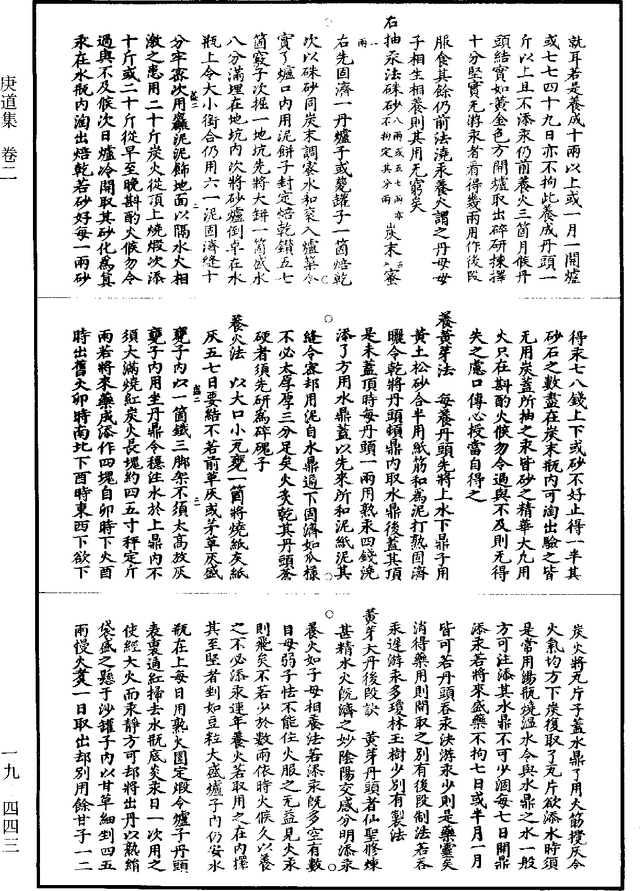 庚道集　卷二
就耳若是養成十兩以上或一月一開爐
或七七四十九日亦不拘此養成丹頭一
斤以上且不添汞仍前養火三箇月候丹
頭結實如黃金色方開爐取出碎研揀擇
十分堅實无游汞者有得幾兩用作後段
服食其餘仍前法澆汞養火謂之丹母母
子相生相養則其用无窮矣
右抽汞法硃砂八兩或五七兩亦不拘定其分兩炭末一兩蜜
右先固濟一丹爐子或甆罐子一箇焙乾
次以硃砂同炭末調蜜水和來入爐築令
實了爐口內用泥餅子封定焙乾鑽五七
箇竅子次掘一地坑先將大缾一箇盛水
八分滿埋在地坑內次將砂爐倒卓在水
瓶上令大小銜合仍用六一泥固濟縫十
分牢密次用麤泥泥飾地面以隔水火相
激之患用二十斤炭火從頂上燒煅次添
十斤或二十斤從早至晚斟酌火候勿令
過與不及候次日爐冷開取其砂化爲真
汞在水瓶內淘出焙乾若砂好每一兩砂
得汞七八錢上下或砂不好止得一半其
砂石之數盡在炭末瓶內可淘出驗之皆
无用炭蓋所抽之汞皆砂之精華大九用
火只在斟酌火候勿令過與不及則无得
失之處口傳心授當自得之
養黃芽法　每養丹頭先將上水下鼎子用
黃土松砂合半用紙筋和爲泥打熟固濟
曬令乾將丹頭頓鼎內取水鼎後蓋其頂
是未蓋頂時每丹頭一兩用熟汞四錢澆
添了方用水鼎蓋以先來所和泥紙泥其
縫令密却用泥自水鼎邊下固濟如瓜樣
不必太厚厚三分足矣火炙乾其丹頭蒼
硬者須先研爲碎塊子
養火法　以大口小瓦甕一箇將燒紙灰紙
灰五七日要結不若前草灰或茅草灰盛
甕子內以一箇鐵三脚架不須太高放灰
甕子內用坐丹鼎令穩注水於上鼎內不
須大滿燒紅炭火長塊約四五寸秤定斤
兩若將來藥成添作四塊自卯時下火酉
時出舊火卯時南北下酉時東西下欲下
炭火將瓦片子蓋水鼎了用火筯攪灰令
火氣均方下炭復取了瓦片欲添水時須
是常用湯瓶燒溫水令與水鼎之水一般
方可注添其水鼎不可少涸每七日開鼎
添汞若將來盛藥不拘七日或半月一月
皆可若丹頭吞汞決游汞少則是藥靈矣
消得藥用則開取之別有後段制法若吞
汞遲游汞多瓊林玉樹少別有製法
黃芽大丹後段訣　黃芽丹頭者仙聖修煉
甚精水火旣濟之妙陰陽交感分明添汞
養火如子母相養法若添汞旣多空有數
目母弱子怯不能住火服之无益見火汞
則飛矣不若少於數兩依時火候久以養
之不必添汞連年養火若取用之在內擇
其至堅者剉如豆粒大盛爐子內仍安水
瓶在上每日用熟火圍定煅令爐子丹頭
表裏通紅掃去水瓶底炎汞日一次用之
使經大火而汞靜方可却將出丹以熟絹
袋盛之懸于沙罐子內以甘草細剉四五
兩慢火煑一日取出却別用餘甘子一二
一九　四四三